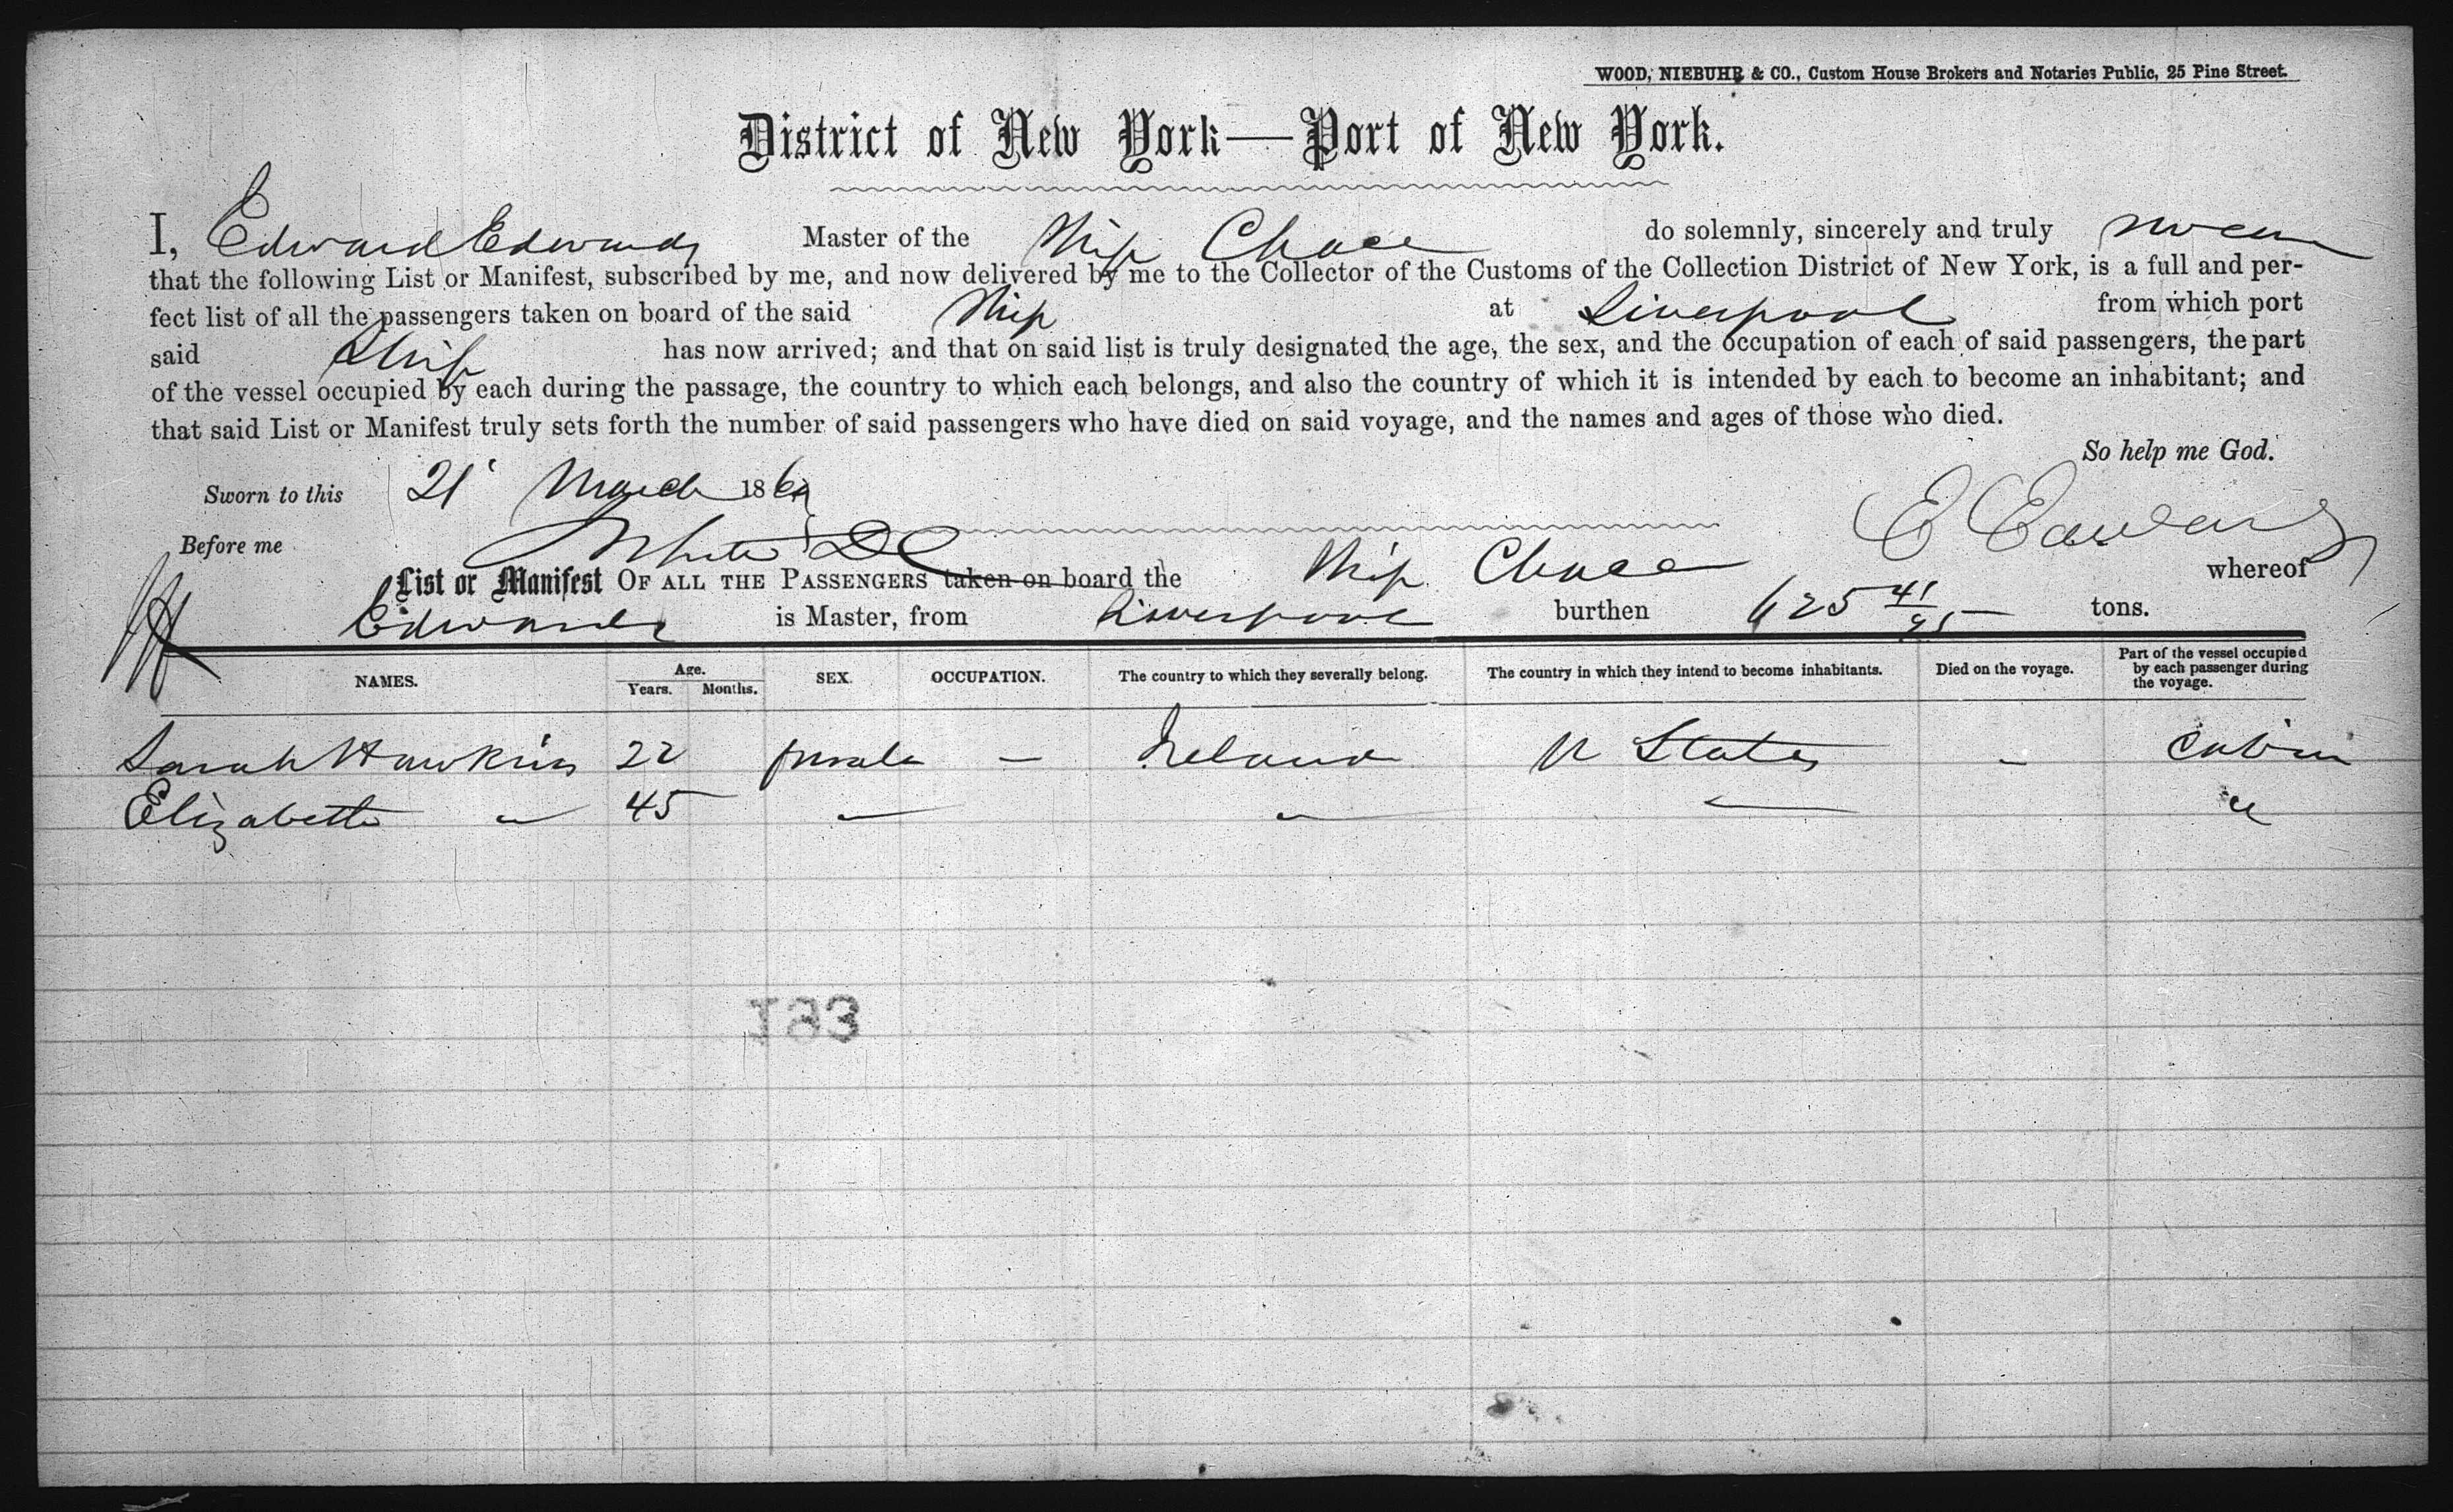 WOOD, NIEBUHR & CO., Custom House Brokers and Notaries Public, 25 Pine Street.
District of New York—Port of New York.
I, Edward Edwards Master of the Ship Chace do solemnly, sincerely and truly swear
that the following List or Manifest, subscribed by me, and now delivered by me to the Collector of the Customs of the Collection District of New York, is a full and per-
fect list of all the passengers taken on board of the said Ship at Liverpool from which port
said Ship has now arrived; and that on said list is truly designated the age, the sex, and the occupation of each of said passengers, the part
of the vessel occupied by each during the passage, the country to which each belongs, and also the country of which it is intended by each to become an inhabitant; and
that said List or Manifest truly sets forth the number of said passengers who have died on said voyage, and the names and ages of those who died.
So help me God.
Sworn to this 21 March 186
Before me White DC E Edwards
List or Manifest OF ALL THE PASSENGERS taken on board the Ship Chace whereof
Edwards is Master, from Liverpool burthen 625 41/95 tons.
NAMES. Age. Years. Months. SEX. OCCUPATION. The country to which they severally belong. The country in which they intend to become inhabitants. Died on the voyage. Part of the vessel occupied by each passenger during the voyage.
Sarah Hawkins 22 female — Ireland U States - Cabin
Elizabeth " 45 " " — "
193